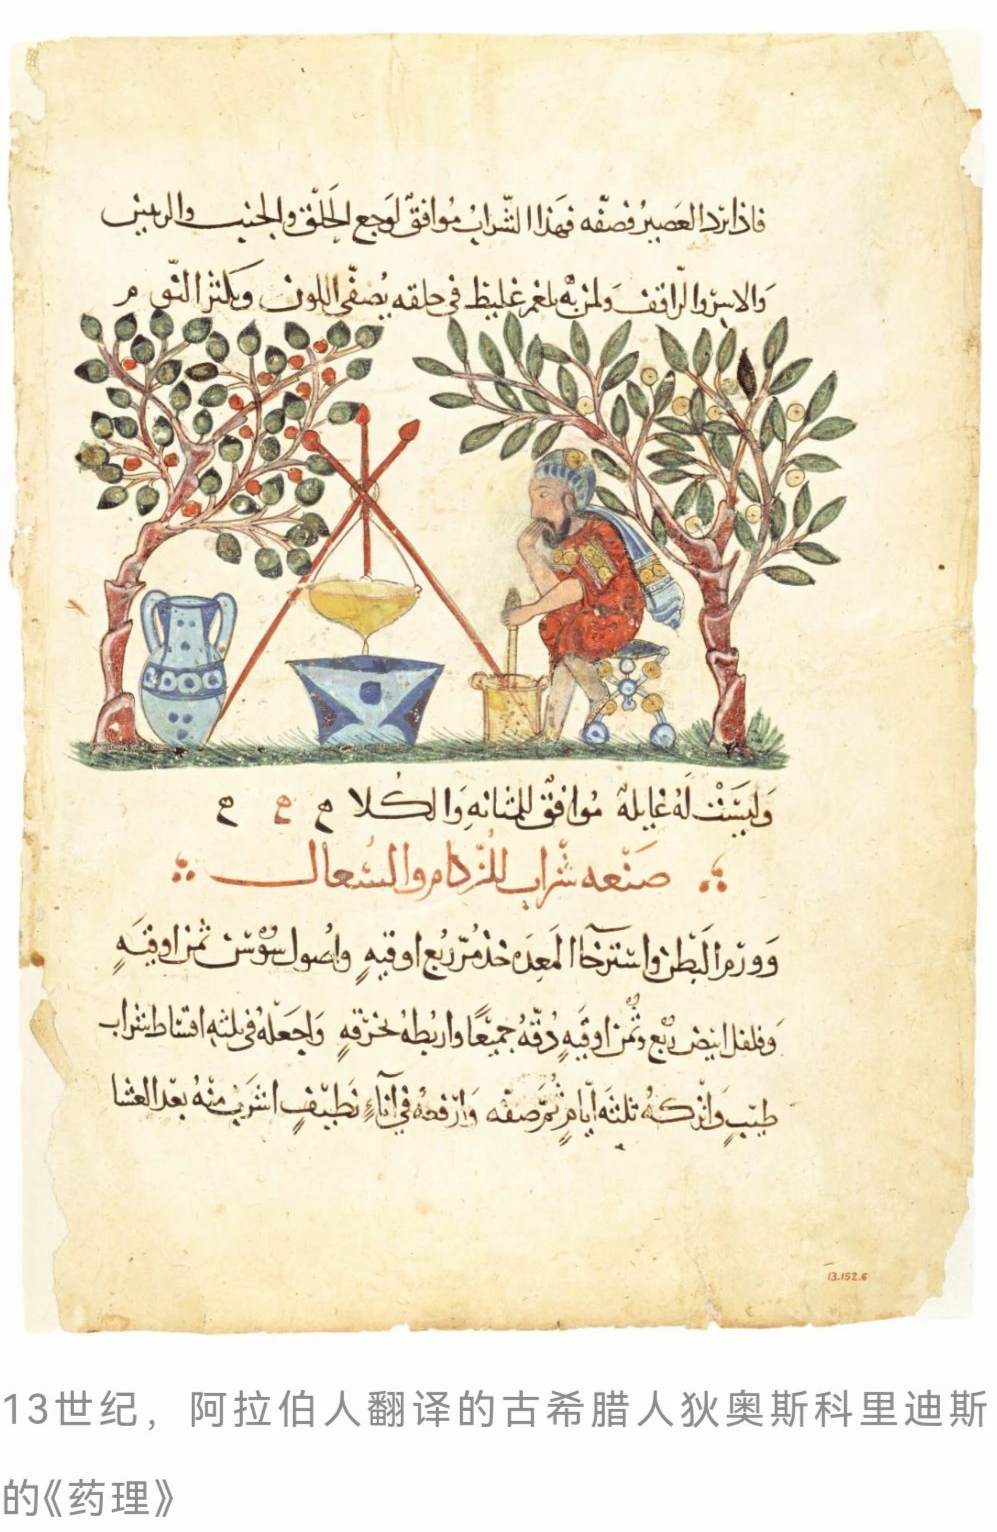 فاذا برد العصير فصفه فهذا الشراب موافق لوجع الحلق والجنب
ولمن به بلغم غليظ في حلقه يصفي اللون ويكثر النوم
وليست له غايلة موافق للمثانه والكلا ح ح ح
صنعه شراب للزكام والسعال
وورم البطن واسترخا المعده خذ مر ربع اوقيه واصول سوسن ثمن اوقيه
وفلفل ابيض ربع وثمن اوقيه دقه جميعا واربطه بخرقه واجعله في ثلثه اقساط شراب
طيب واتركه ثلثه ايام ثم صفه وارفعه في اناء نظيف اشرب منه بعد العشا
13.152.6
13世纪，阿拉伯人翻译的古希腊人狄奥斯科里迪斯
的《药理》